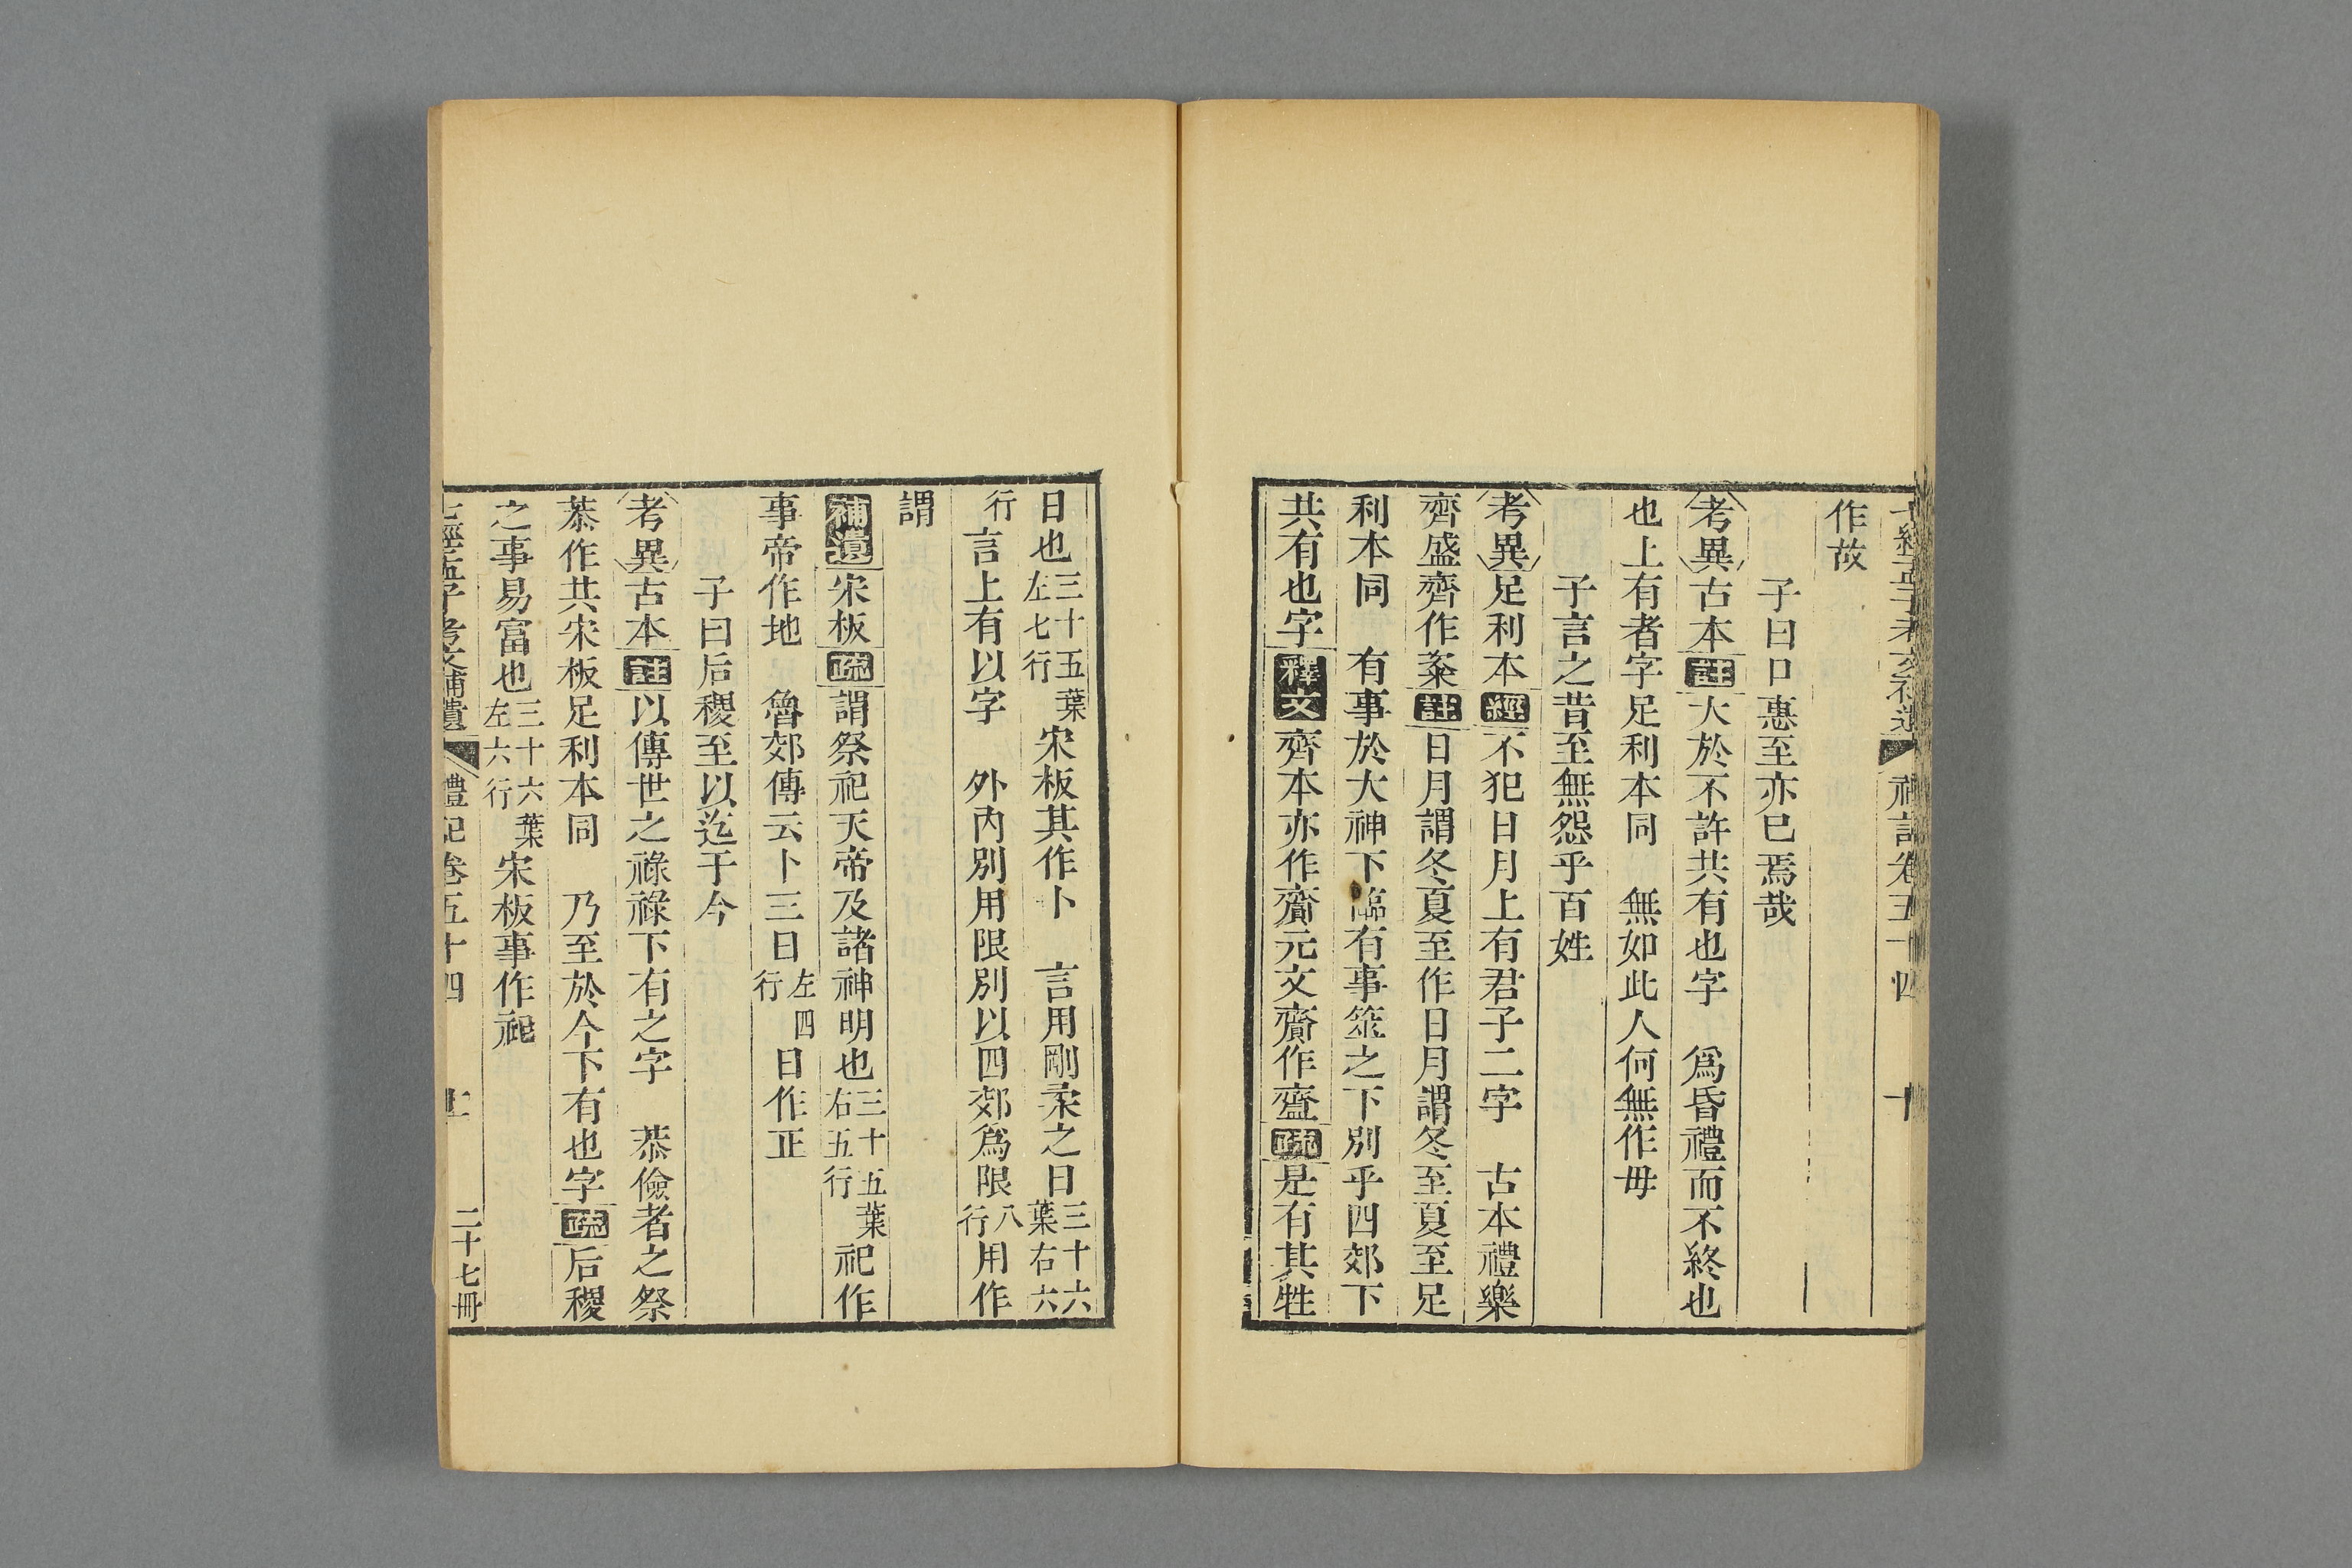 作故
子曰口惠至亦已焉哉
考異古本註大於不許共有也字　爲昏禮而不終也
也上有者字足利本同　無如此人何無作毋
子言之昔至無怨乎百姓
考異足利本經不犯日月上有君子二字　古本禮樂
齊盛齊作粢註日月謂冬夏至作日月謂冬至夏至足
利本同　有事於大神下臨有事筮之下別乎四郊下
共有也字釋文齊本亦作齌元文齌作齍疏是有其牲
日也三十五葉左七行宋板其作卜　言用剛柔之日三十六葉右六
行言上有以字　外內別用限別以四郊爲限八行用作
謂
補遺宋板疏謂祭祀天帝及諸神明也三十五葉右五行祀作
事帝作地　魯郊傳云卜三日左四行日作正
子曰后稷至以迄于今
考異古本註以傳世之祿祿下有之字　恭儉者之祭
恭作共宋板足利本同　乃至於今下有也字疏后稷
之事易富也三十六葉左六行宋板事作祀
七經孟子考文補遺　禮記卷五十四　二十七冊